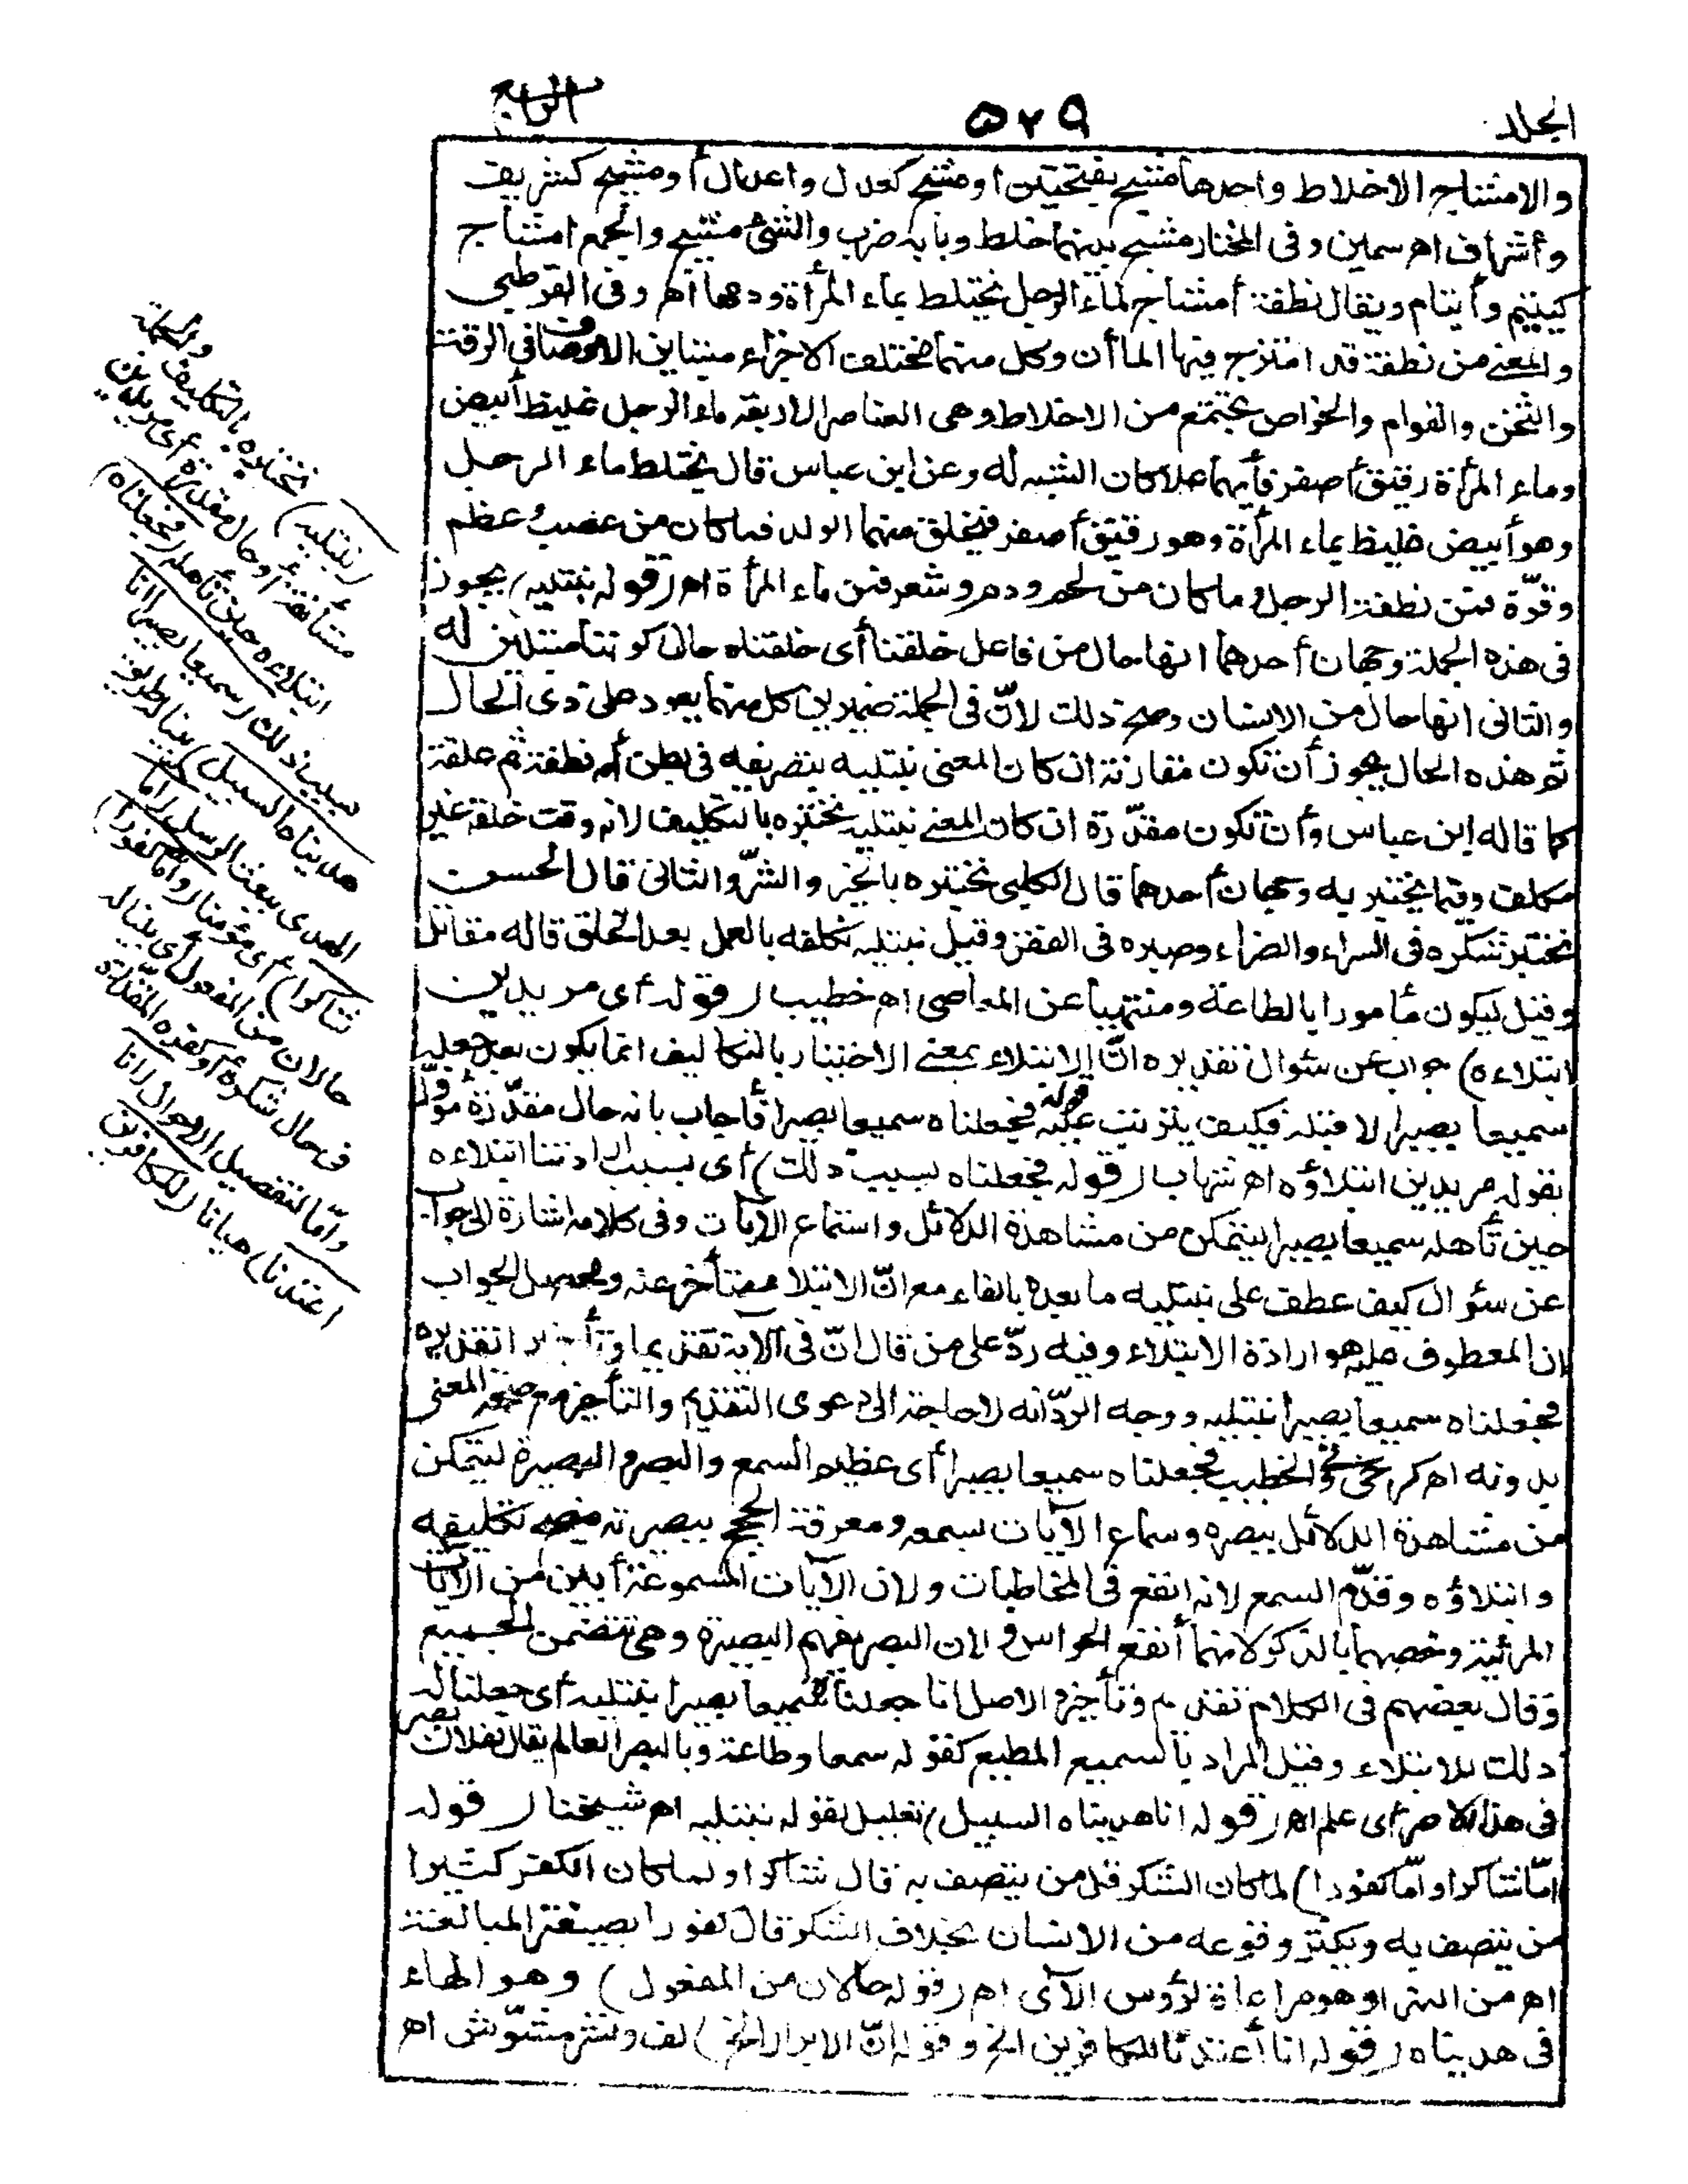 الجلد ٥٢٩ الرابع
والامشاج الاخلاط واحدها مشج بفتحتين أو مشج كعدل وأعدال أو مشيج كشريف
وأشراف اهـ سمين وفى المختار مشج بينهما خلط وبابه ضرب والشئ مشيج والجمع أمشاج
كيتيم وأيتام ويقال نطفة أمشاج لماء الرجل يختلط بماء المرأة ودمها اهـ وفى القرطبى
والمعنى من نطفة قد امتزج فيها الماآن وكل منهما مختلف الاجزاء متباين الاوصاف فى الرقة
والثخن والقوام والخواص يجتمع من الاخلاط وهى العناصر الاربعة ماء الرجل غليظ أبيض
وماء المرأة رقيق أصفر فأيهما علا كان الشبه له وعن ابن عباس قال يختلط ماء الرجل
وهو أبيض غليظ بماء المرأة وهو رقيق أصفر فيخلق منهما الولد فما كان من عصب وعظم
وقوّة فمن نطفة الرجل وما كان من لحم ودم وشعر فمن ماء المرأة اهـ (قوله نبتليه) يجوز
فى هذه الجملة وجهان أحدهما انها حال من فاعل خلقنا أى خلقناه حال كوننا مبتلين له
والثانى انها حال من الانسان وصح ذلك لانّ فى الجملة ضميرين كل منهما يعود على ذى الحال
ثم هذه الحال يجوز أن تكون مقارنة ان كان المعنى نبتليه بتصريفه فى بطن أمه نطفة ثم علقة
كما قاله ابن عباس وأن تكون مقدّرة ان كان المعنى نبتليه نختبره بالتكليف لانه وقت خلقه غير
مكلف وفيما يختبر به وجهان أحدهما قال الكلبى نختبره بالخير والشرّ والثانى قال الحسن
نختبر شكره فى السراء والضراء وصبره فى الفقر وقيل نبتليه نكلفه بالعمل بعد الخلق قاله مقاتل
وقيل ليكون مأمورا بالطاعة ومنتهيا عن المعاصى اهـ خطيب (قوله أى مريدين
ابتلاءه) جواب عن سؤال تقديره انّ الابتلاء بمعنى الاختبار بالتكاليف انما يكون بعد جعله
سميعا بصيرا لا قبله فكيف يترتب عليه قوله فجعلناه سميعا بصيرا فأجاب بانه حال مقدّرة مؤوّلا
بقوله مريدين ابتلاؤه اهـ شهاب (قوله فجعلناه بسبب ذلك) أى بسبب ارادتنا ابتلاءه
حين تأهله سميعا بصيرا ليتمكن من مشاهدة الدلائل واستماع الآيات وفى كلامه اشارة الى جواب
عن سؤال كيف عطف على نبتليه ما بعده بالفاء مع انّ الابتلاء متأخر عنه ومحصل الجواب
ان المعطوف عليه هو ارادة الابتلاء وفيه ردّ على من قال انّ فى الآية تقديما وتأخيرا تقديره
فجعلناه سميعا بصيرا نبتليه ووجه الردّ أنه لا حاجة الى دعوى التقديم والتأخير مع صحة المعنى
بدونه اهـ كرخى وفى الخطيب فجعلناه سميعا بصيرا أى عظيم السمع والبصر والبصيرة ليتمكن
من مشاهدة الدلائل ببصره وسماع الآيات بسمعه ومعرفة الحجج ببصيرته فيصح تكليفه
وابتلاؤه وقدّم السمع لانه انفع فى المخاطبات ولان الآيات المسموعة أبين من الآيات
المرئية وخصهما بالذكر لانهما أنفع الحواس ولان البصر يفهم البصيرة وهى تتضمن الجميع
وقال بعضهم فى الكلام تقديم وتأخير والاصل انا جعلناه سميعا بصيرا نبتليه أى جعلنا له
ذلك للابتلاء وقيل المراد بالسميع المطيع كقوله سمعا وطاعة وبالبصير العالم يقال لفلان بصر
فى هذا الامر أى علم اهـ (قوله انا هديناه السبيل) تعليل لقوله نبتليه اهـ شيخنا (قوله
امّا شاكرا وامّا كفورا) لما كان الشكر قلّ من يتصف به قال شاكرا ولما كان الكفر كثيرا
من يتصف به ويكثر وقوعه من الانسان بخلاف الشكر قال كفورا بصيغة المبالغة
اهـ من النهر او هو مراعاة لرؤس الآى اهـ (قوله حالان من المفعول) وهو الهاء
فى هديناه (قوله انا أعتدنا للكافرين الخ وقوله انّ الابرار الخ) لف ونشر مشوّش اهـ
(نبتليه) نختبره بالتكليف والجملة
مستأنفة أو حال مقدرة أى مريدين
ابتلاءه حين تأهله (فجعلناه)
بسبب ذلك (سميعا بصيرا انا
هديناه السبيل) بينا له طريق
الهدى ببعث الرسل (اما
شاكرا) أى مؤمنا (واما كفورا)
حالان من المفعول أى بينا له
فى حال شكره أو كفره المقدّرة
وامّا لتفصيل الاحوال (انا
اعتدنا) هيأنا (للكافرين